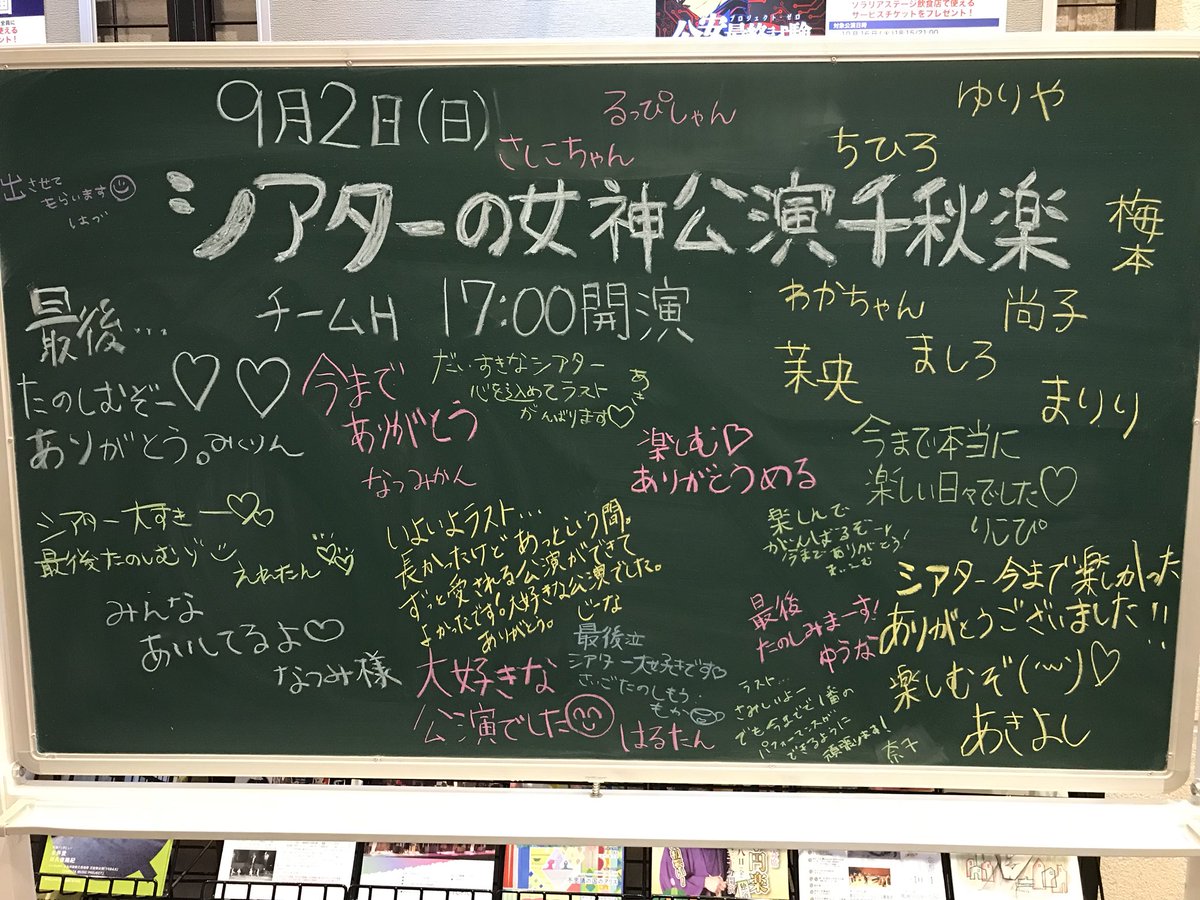 ソラリアステージ飲食店で使える
サービスチケットをプレゼント！
対象公演日時
プロジェクト・ゼロ
公安最終試験
9月2日(日)
るっぴしゃん
さしこちゃん
ゆりや
ちひろ
出させて
もらいます
はづ
シアターの女神公演千秋楽
梅本
チームH 17:00開演
わかちゃん
尚子
茉央
ましろ
まりり
最後…
たのしむぞー♡♡
ありがとう。みくりん
今まで
ありがとう
なつみかん
だいすきなシアター
心を込めてラスト
がんばります♡
あき
楽しむ♡
ありがとうめる
今まで本当に
楽しい日々でした♡
りこぴ
シアター大すきー♡
最後たのしむゾ
えれたん
みんな
あいしてるよ♡
なつみ様
いよいよラスト…
長かったけどあっという間。
ずっと愛される公演ができて
よかったです。大好きな公演でした。
じーな
ありがとう。
楽しんで
がんばるぞー!
今までありがとう!
まいこむ
最後
たのしみまーす!
ゆうな
シアター今まで楽しかった
ありがとうございました!!
楽しむぞ
あきよし
大好きな
公演でした
はるたん
最後泣
シアター大好きです♡
さいごたのしもう
もか
ラスト…
さみしいよー
でも今までで1番の
パフォーマンスが
できるように
頑張ります!
奈子